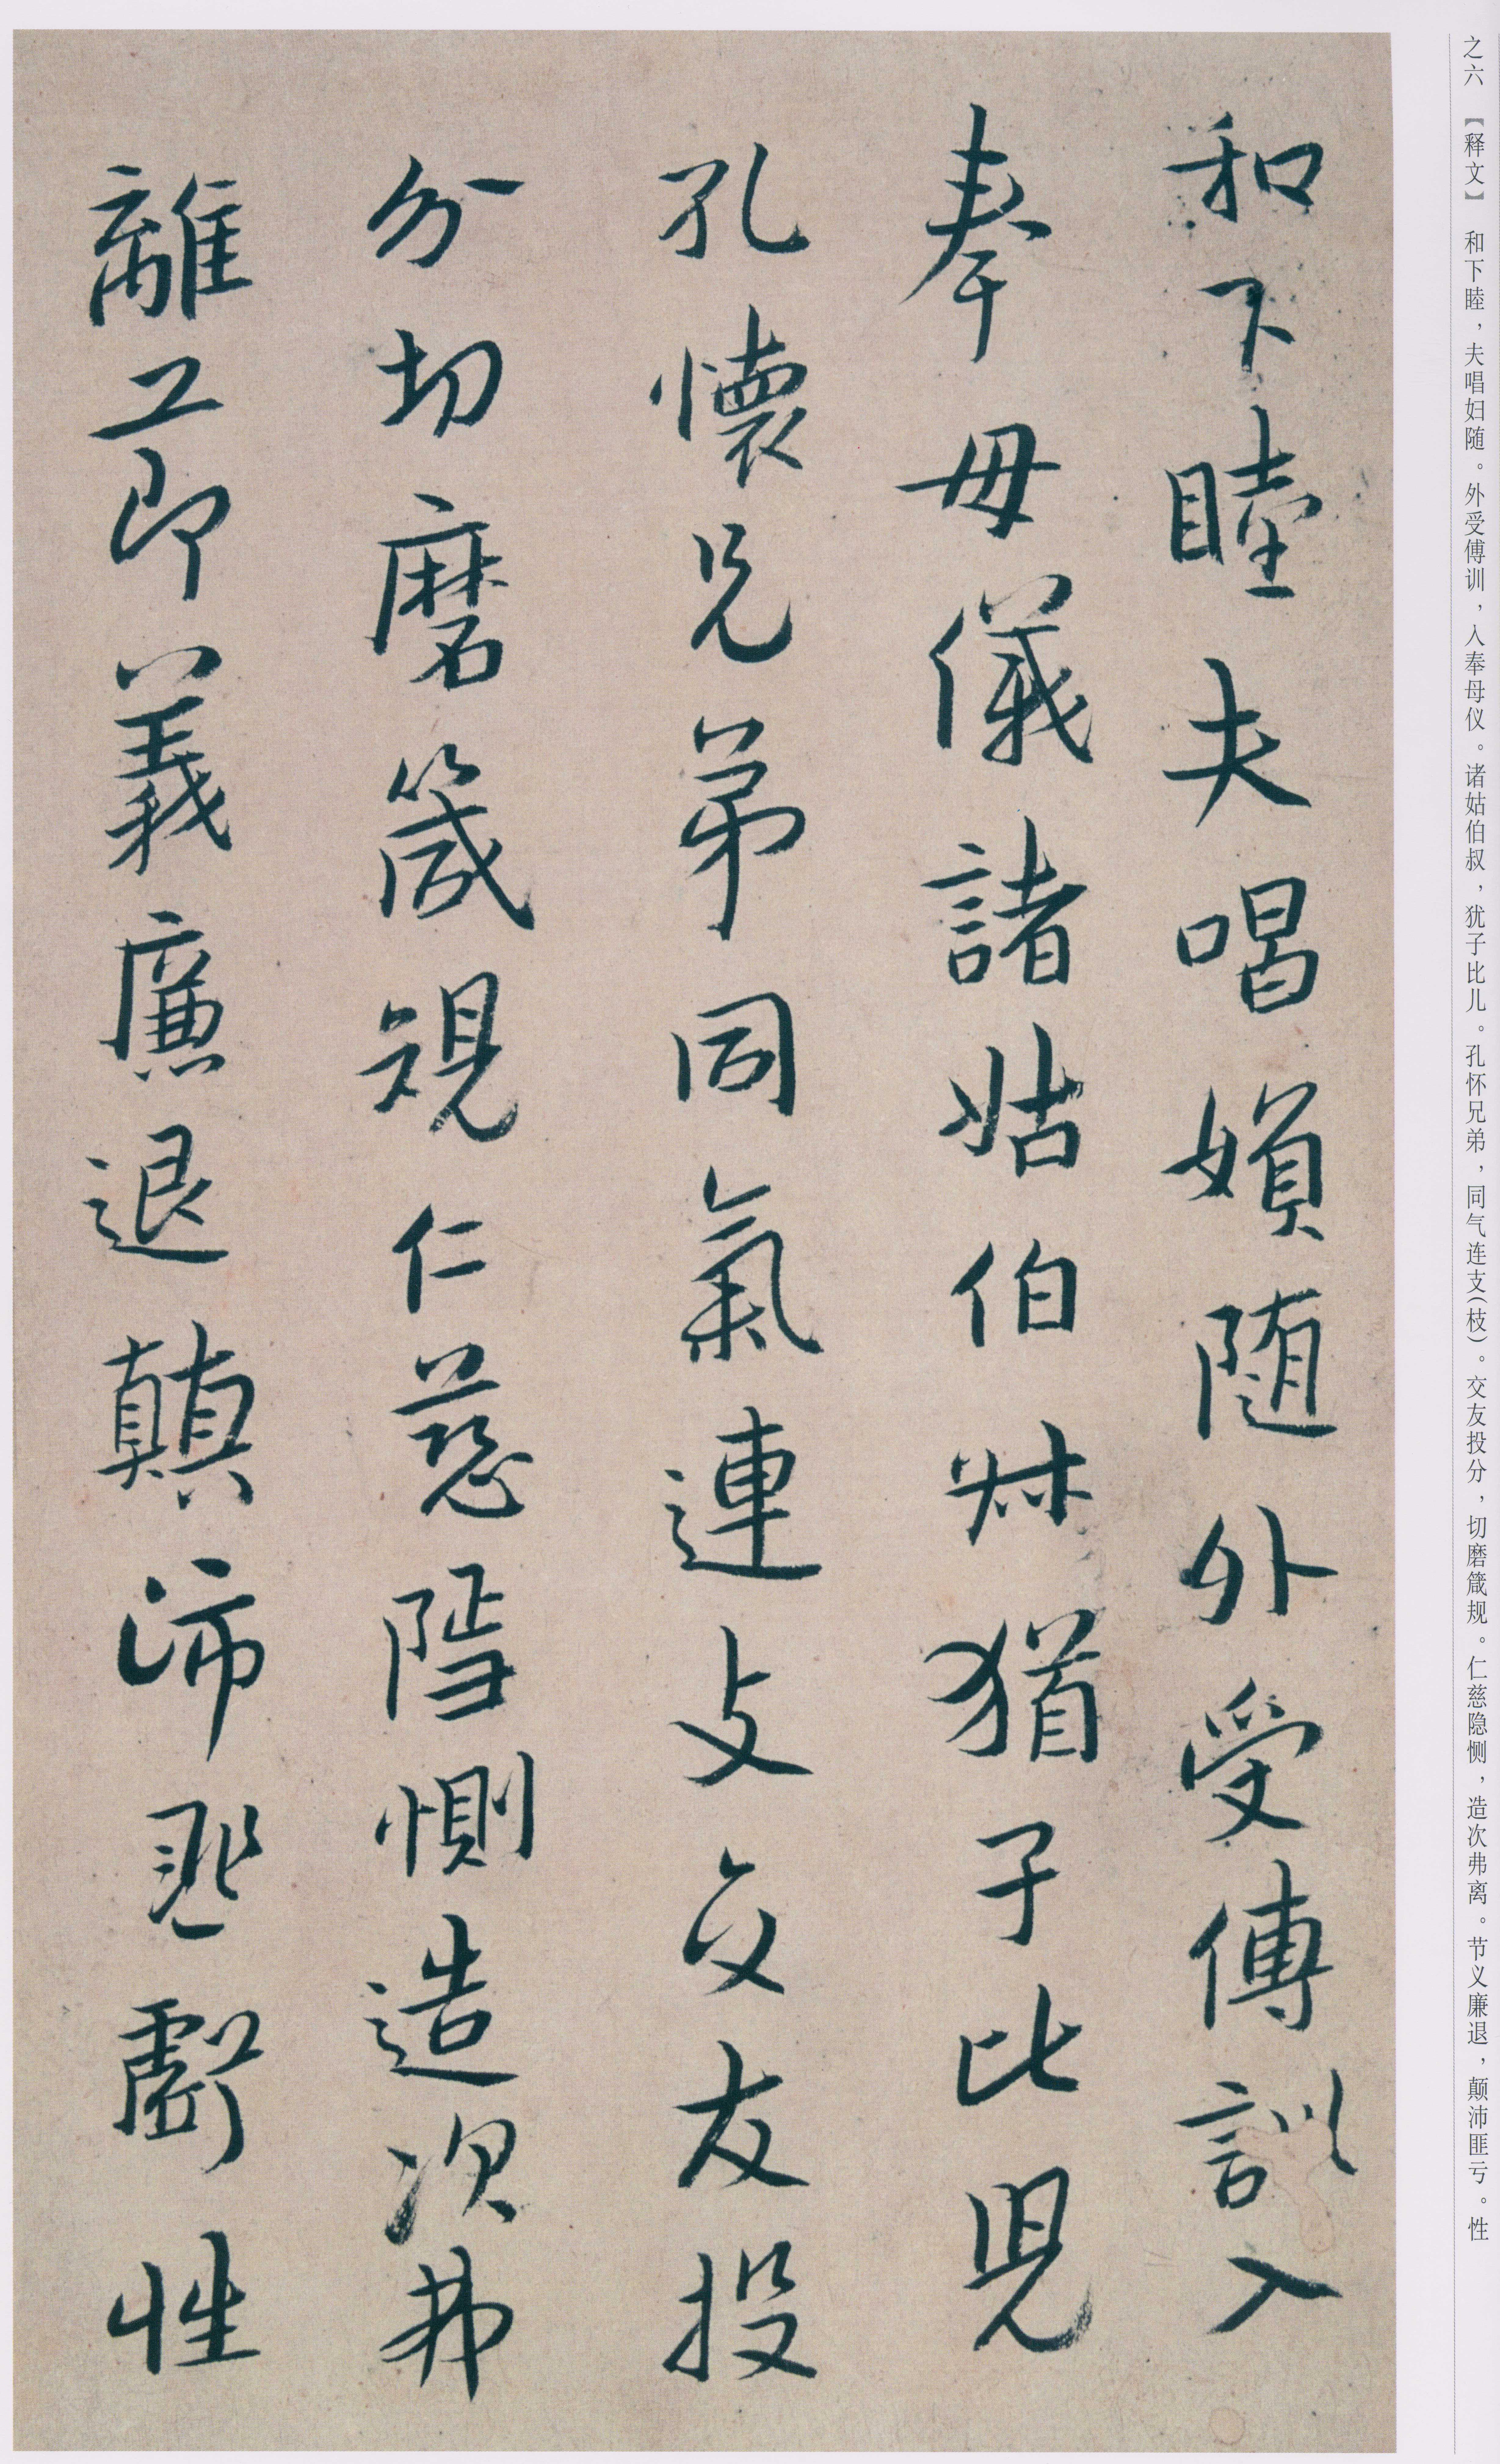 之六 【释文】 和下睦，夫唱妇随。外受傅训，入奉母仪。诸姑伯叔，犹子比儿。孔怀兄弟，同气连支(枝)。交友投分，切磨箴规。仁慈隐恻，造次弗离。节义廉退，颠沛匪亏。性
和下睦夫唱媍随外受傅訓入
奉母儀諸姑伯叔猶子比兒
孔懷兄弟同氣連支交友投
分切磨箴規仁慈隱惻造次弗
離節義廉退顛沛匪虧性